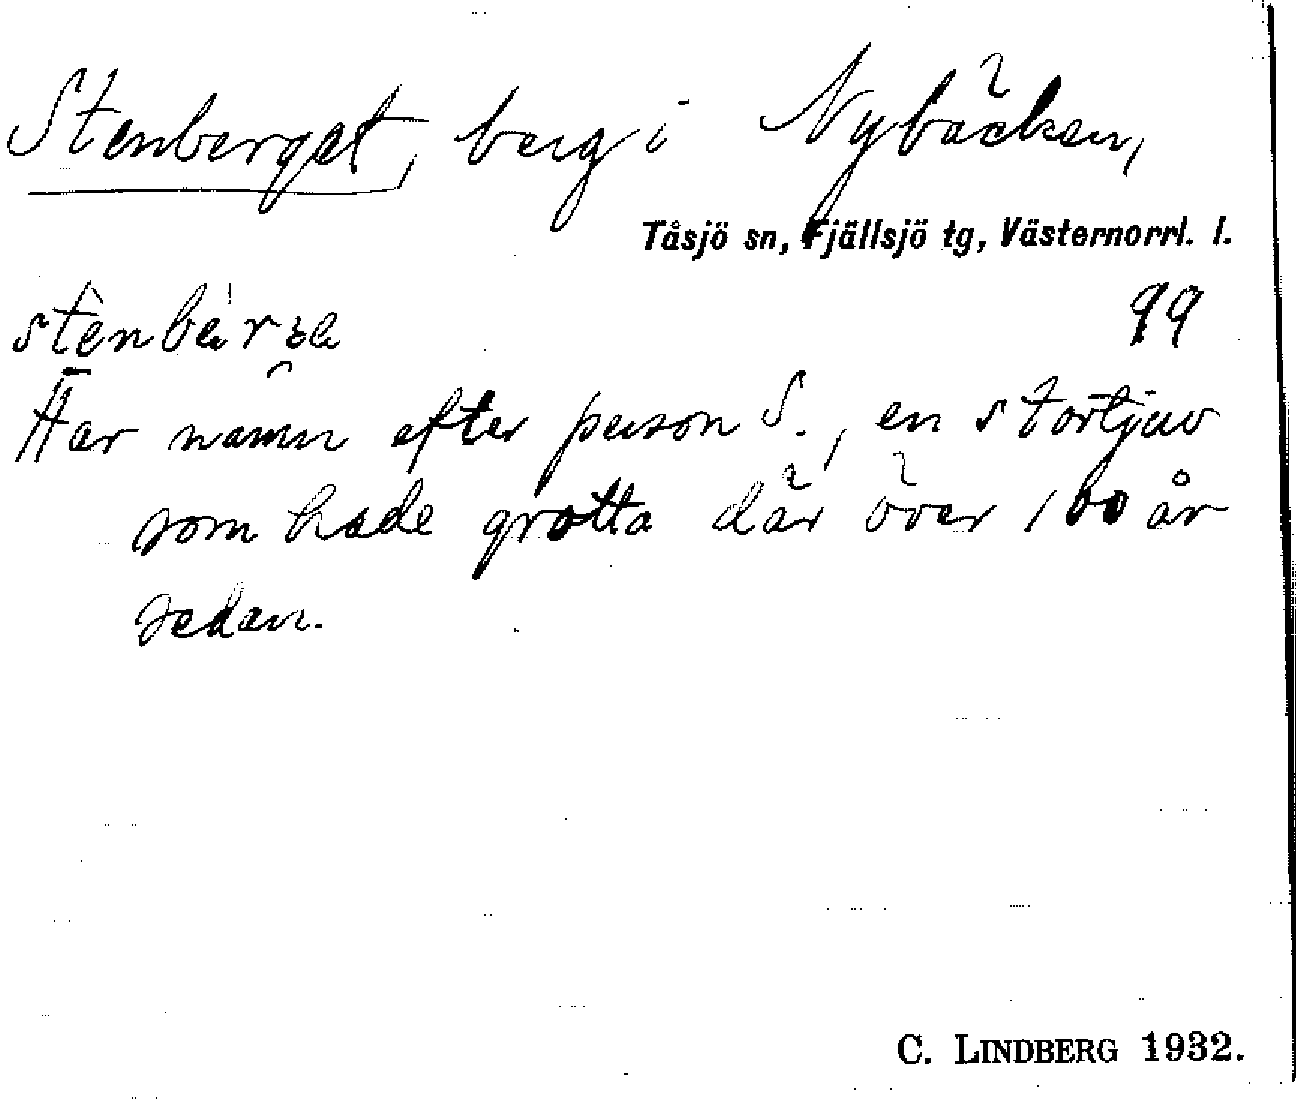 Stenberget, berg i Nybäcken,
Tåsjö sn, Fjällsjö tg, Västernorrl. l.
99
Har namn efter person S., en stortjuv
som hade grotta där över 100 år
sedan.
C. LINDBERG 1932.